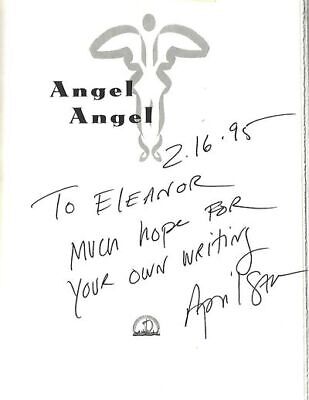 Angel
Angel
2.16.95
TO ELEANOR
MUCH HOPE FOR
YOUR OWN WRITING
April